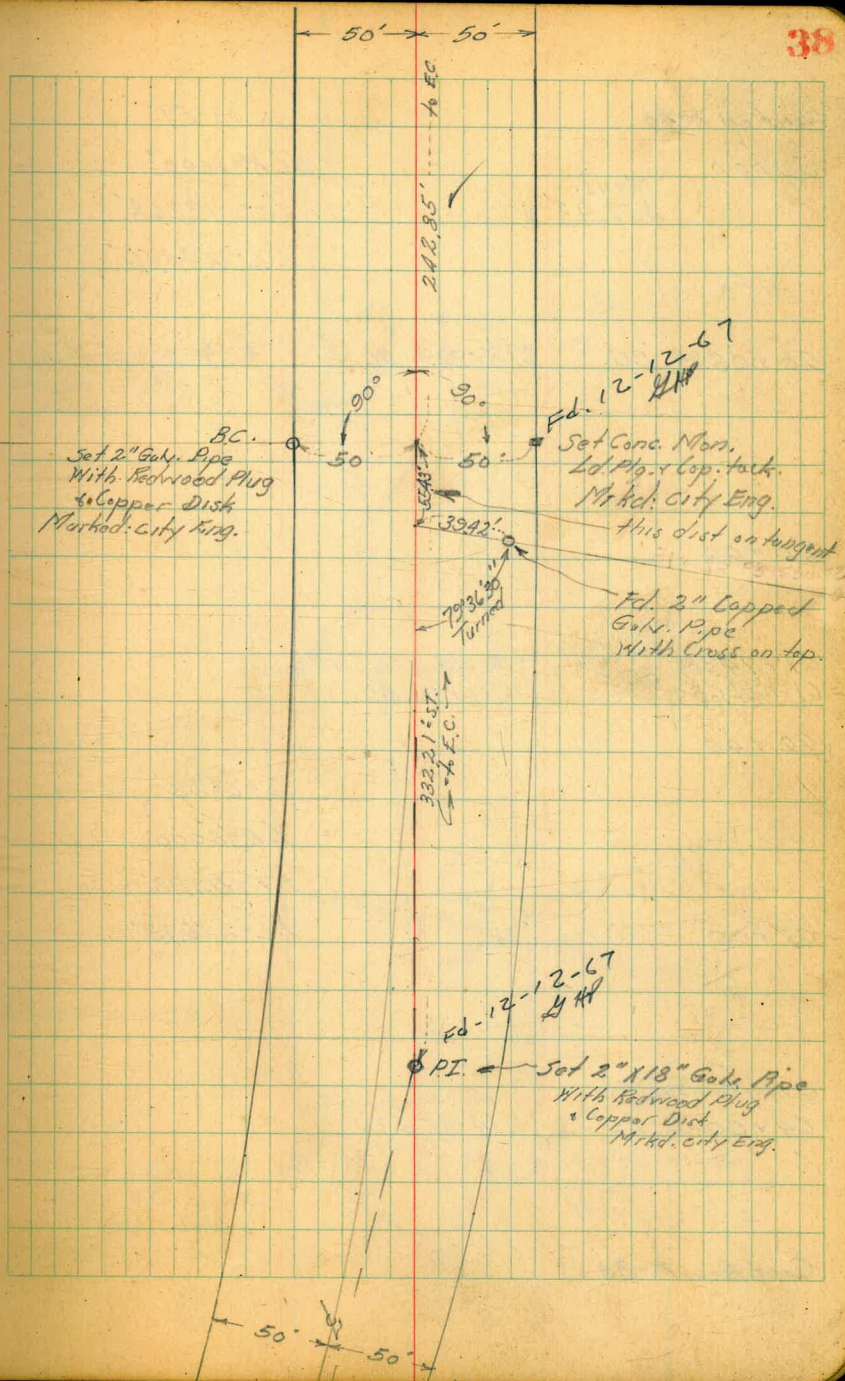 38
50' 50'
242.85' ---- to E.C.
Fd. 12-12-67
90° 90°
B.C.
50 50'
Set 2" Galv. Pipe
With Redwood Plug
& Copper Disk
Marked: City Eng.
Set Conc. Mon.
Ld. Plg. & Cop. tack.
Mrkd: City Eng.
this dist on tangent
39.42'
79°36'30"
Turned
Fd. 2" Capped
Galv. Pipe
With Cross on top.
332.21' S.T.
to E.C.
Fd-12-12-67
P.I.
Set 2" X 18" Galv. Pipe
With Redwood Plug
& Copper Disk
Mrkd. City Eng.
50' 50'